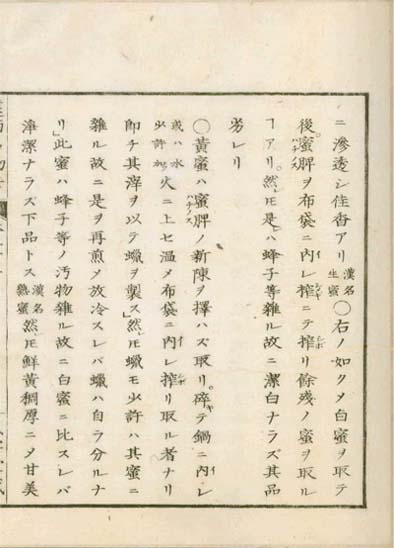 ニ滲透シ佳香アリ漢名生蜜〇右ノ如クメ白蜜ヲ取テ
後。蜜脾ハチノスヲ布袋ニ內イレ搾シメギニテ搾シボリ餘残ノ蜜ヲ取ル
ヿアリ。然レ𪜈是レハ蜂子等雜ル故ニ潔白ナラズ其品
劣レリ
〇黃蜜ハ蜜脾ハチノスノ新陳ヲ擇ハズ取リ。碎キテ鍋ニ內イレ
或ハ水少許加火ニ上セ溫メ布袋ニ內イレ搾シボリ取ル者ナリ
卽チ其滓ヲ以テ蠟ヲ製ス」然レ𪜈蠟モ少許ハ其蜜ニ
雜ル故ニ是ヲ再煎メ放冷スレバ蠟ハ自ラ分ルナ
リ」此蜜ハ蜂子等ノ汚物雜ル故ニ白蜜ニ比スレバ
淨潔ナラズ下品トス漢名熟蜜然レ𪜈鮮黃稠厚ニメ甘美